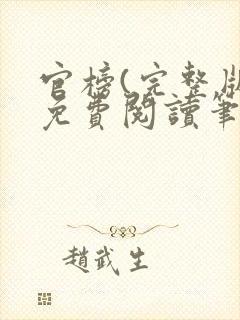 官榜(完整版
免費閱讀筆
趙武生